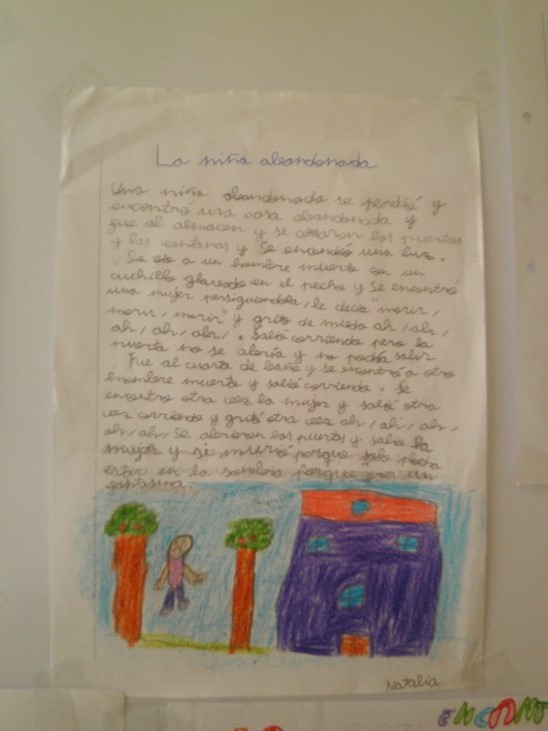 La niña abandonada
Una niña abandonada se perdió y
encontró una casa abandonada y
fue al almacen y se cerraron las puertas
y las ventanas y se encendió una luz.
Se vio a un hombre muerto con un
cuchillo glavado en el pecho y se encontró
una mujer persiguiendola, le decia "morir,
morir, morir" y gritó de miedo ah, ah,
ah, ah, ah,. Salió corriendo pero la
puerta no se abria y no podia salir
Fue al cuarto de baño y se encontró a otro
hombre muerto y salió corriendo. Se
encontro otra vez la mujer y salió otra
vez corriendo y gritó otra vez ah, ah, ah,
ah, ah, Se abrieron las puertas y salio la
mujer y se murió porque solo podia
estar en la sombra porque era un
fantasma
Natalia